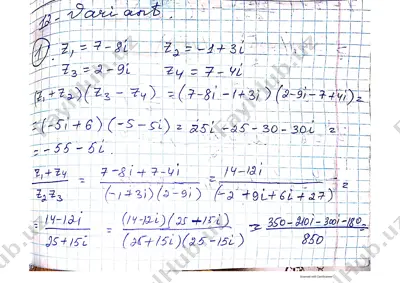 12-Variant.
1) z₁ = 7-8i z₂ = -1+3i
z₃ = 2-9i z₄ = 7-4i
(z₁+z₂)(z₃-z₄) = (7-8i-1+3i)(2-9i-7+4i) =
= (-5i+6)(-5-5i) = 25i-25-30-30i =
= -55-5i.
(z₁+z₄)/(z₂z₃) = (7-8i+7-4i)/((-1+3i)(2-9i)) = (14-12i)/(-2+9i+6i+27) =
= (14-12i)/(25+15i) = ((14-12i)(25+15i))/((25+15i)(25-15i)) = (350-210i-300i-180)/850 =
FayHub.uz